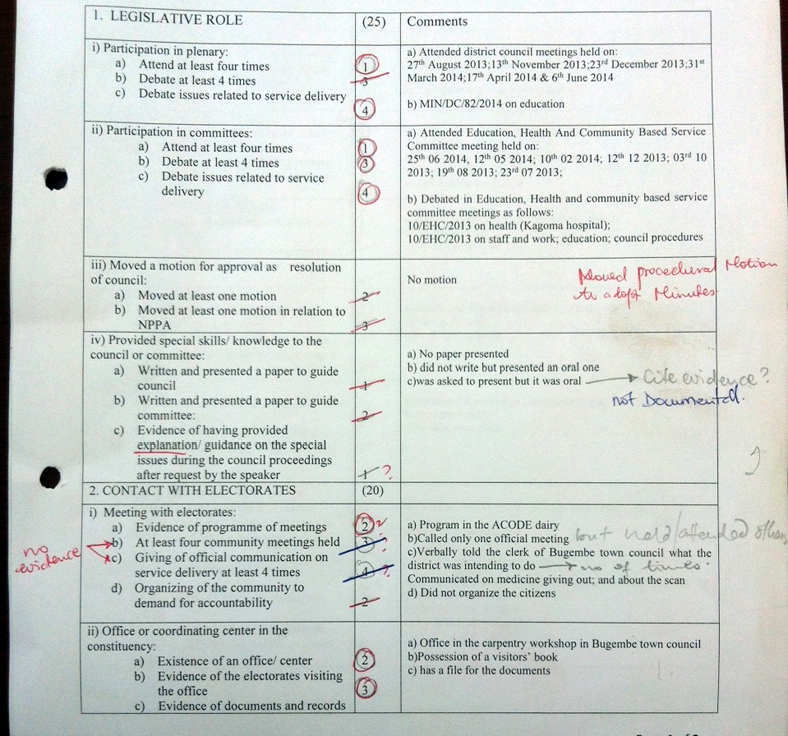 1. LEGISLATIVE ROLE (25) Comments
i) Participation in plenary:
a) Attend at least four times 1
b) Debate at least 4 times 3
c) Debate issues related to service delivery
4
a) Attended district council meetings held on:
27th August 2013;13th November 2013;23rd December 2013;31st
March 2014;17th April 2014 & 6th June 2014
b) MIN/DC/82/2014 on education
ii) Participation in committees:
a) Attend at least four times 1
b) Debate at least 4 times 3
c) Debate issues related to service
delivery 4
a) Attended Education, Health And Community Based Service
Committee meeting held on:
25th 06 2014, 12th 05 2014; 10th 02 2014; 12th 12 2013; 03rd 10
2013; 19th 08 2013; 23rd 07 2013;
b) Debated in Education, Health and community based service
committee meetings as follows:
10/EHC/2013 on health (Kagoma hospital);
10/EHC/2013 on staff and work; education; council procedures
iii) Moved a motion for approval as resolution
of council:
a) Moved at least one motion 2
b) Moved at least one motion in relation to
NPPA 3
No motion
Moved procedural Motion
to adopt Minutes
iv) Provided special skills/ knowledge to the
council or committee:
a) Written and presented a paper to guide
council 1
b) Written and presented a paper to guide
committee: 2
c) Evidence of having provided
explanation/ guidance on the special
issues during the council proceedings
after request by the speaker 1 ?
a) No paper presented
b) did not write but presented an oral one
c)was asked to present but it was oral → Cite evidence?
not Documented.
2. CONTACT WITH ELECTORATES (20)
i) Meeting with electorates:
a) Evidence of programme of meetings 2 ?
b) At least four community meetings held 3 ?
c) Giving of official communication on
service delivery at least 4 times 4 ?
d) Organizing of the community to
demand for accountability 2
no
evidence
a) Program in the ACODE dairy
b)Called only one official meeting but held/attended others
c)Verbally told the clerk of Bugembe town council what the
district was intending to do → no of times.
Communicated on medicine giving out; and about the scan
d) Did not organize the citizens
ii) Office or coordinating center in the
constituency:
a) Existence of an office/ center 2
b) Evidence of the electorates visiting
the office 3
c) Evidence of documents and records
a) Office in the carpentry workshop in Bugembe town council
b)Possession of a visitors' book
c) has a file for the documents